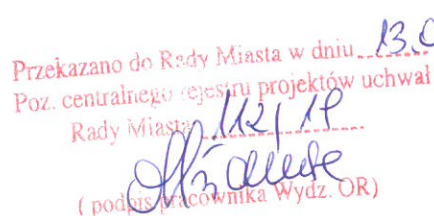 Przekazano do Rady Miasta w dniu 13.0
Poz. centralnego rejestru projektów uchwał
Rady Miasta 112/19
( podpis pracownika Wydz. OR)